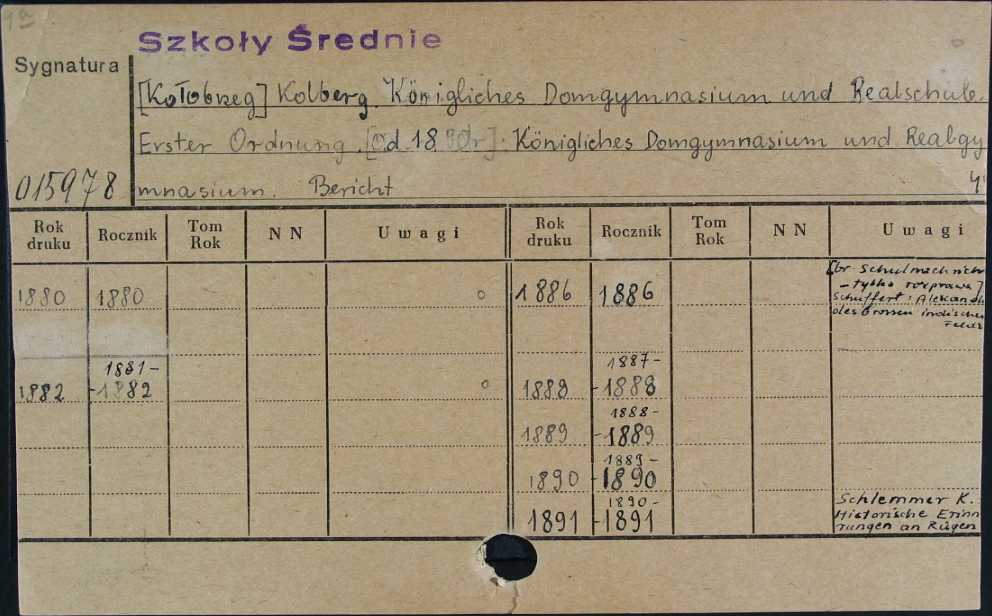 9a
Szkoły Średnie
Sygnatura
[Kołobrzeg] Kolberg. Königliches Domgymnasium und Realschule.
Erster Ordnung. [Od 18 r]. Königliches Domgymnasium und Realgy
015978 mnasium. Bericht 4°
Rok druku Rocznik Tom Rok NN Uwagi Rok druku Rocznik Tom Rok NN Uwagi
[br Schulnachrich
- tylko rozprawa]
1880 1880 o 1886 1886 Schuffert: Alexand
des Grossen indischer
Feldz
1881- 1887-
1882 -1882 o 1888 -1888
1888-
1889 -1889
1889-
1890 -1890
1890- Schlemmer K.
1891 -1891 Historische Erinn
rungen an Rügen